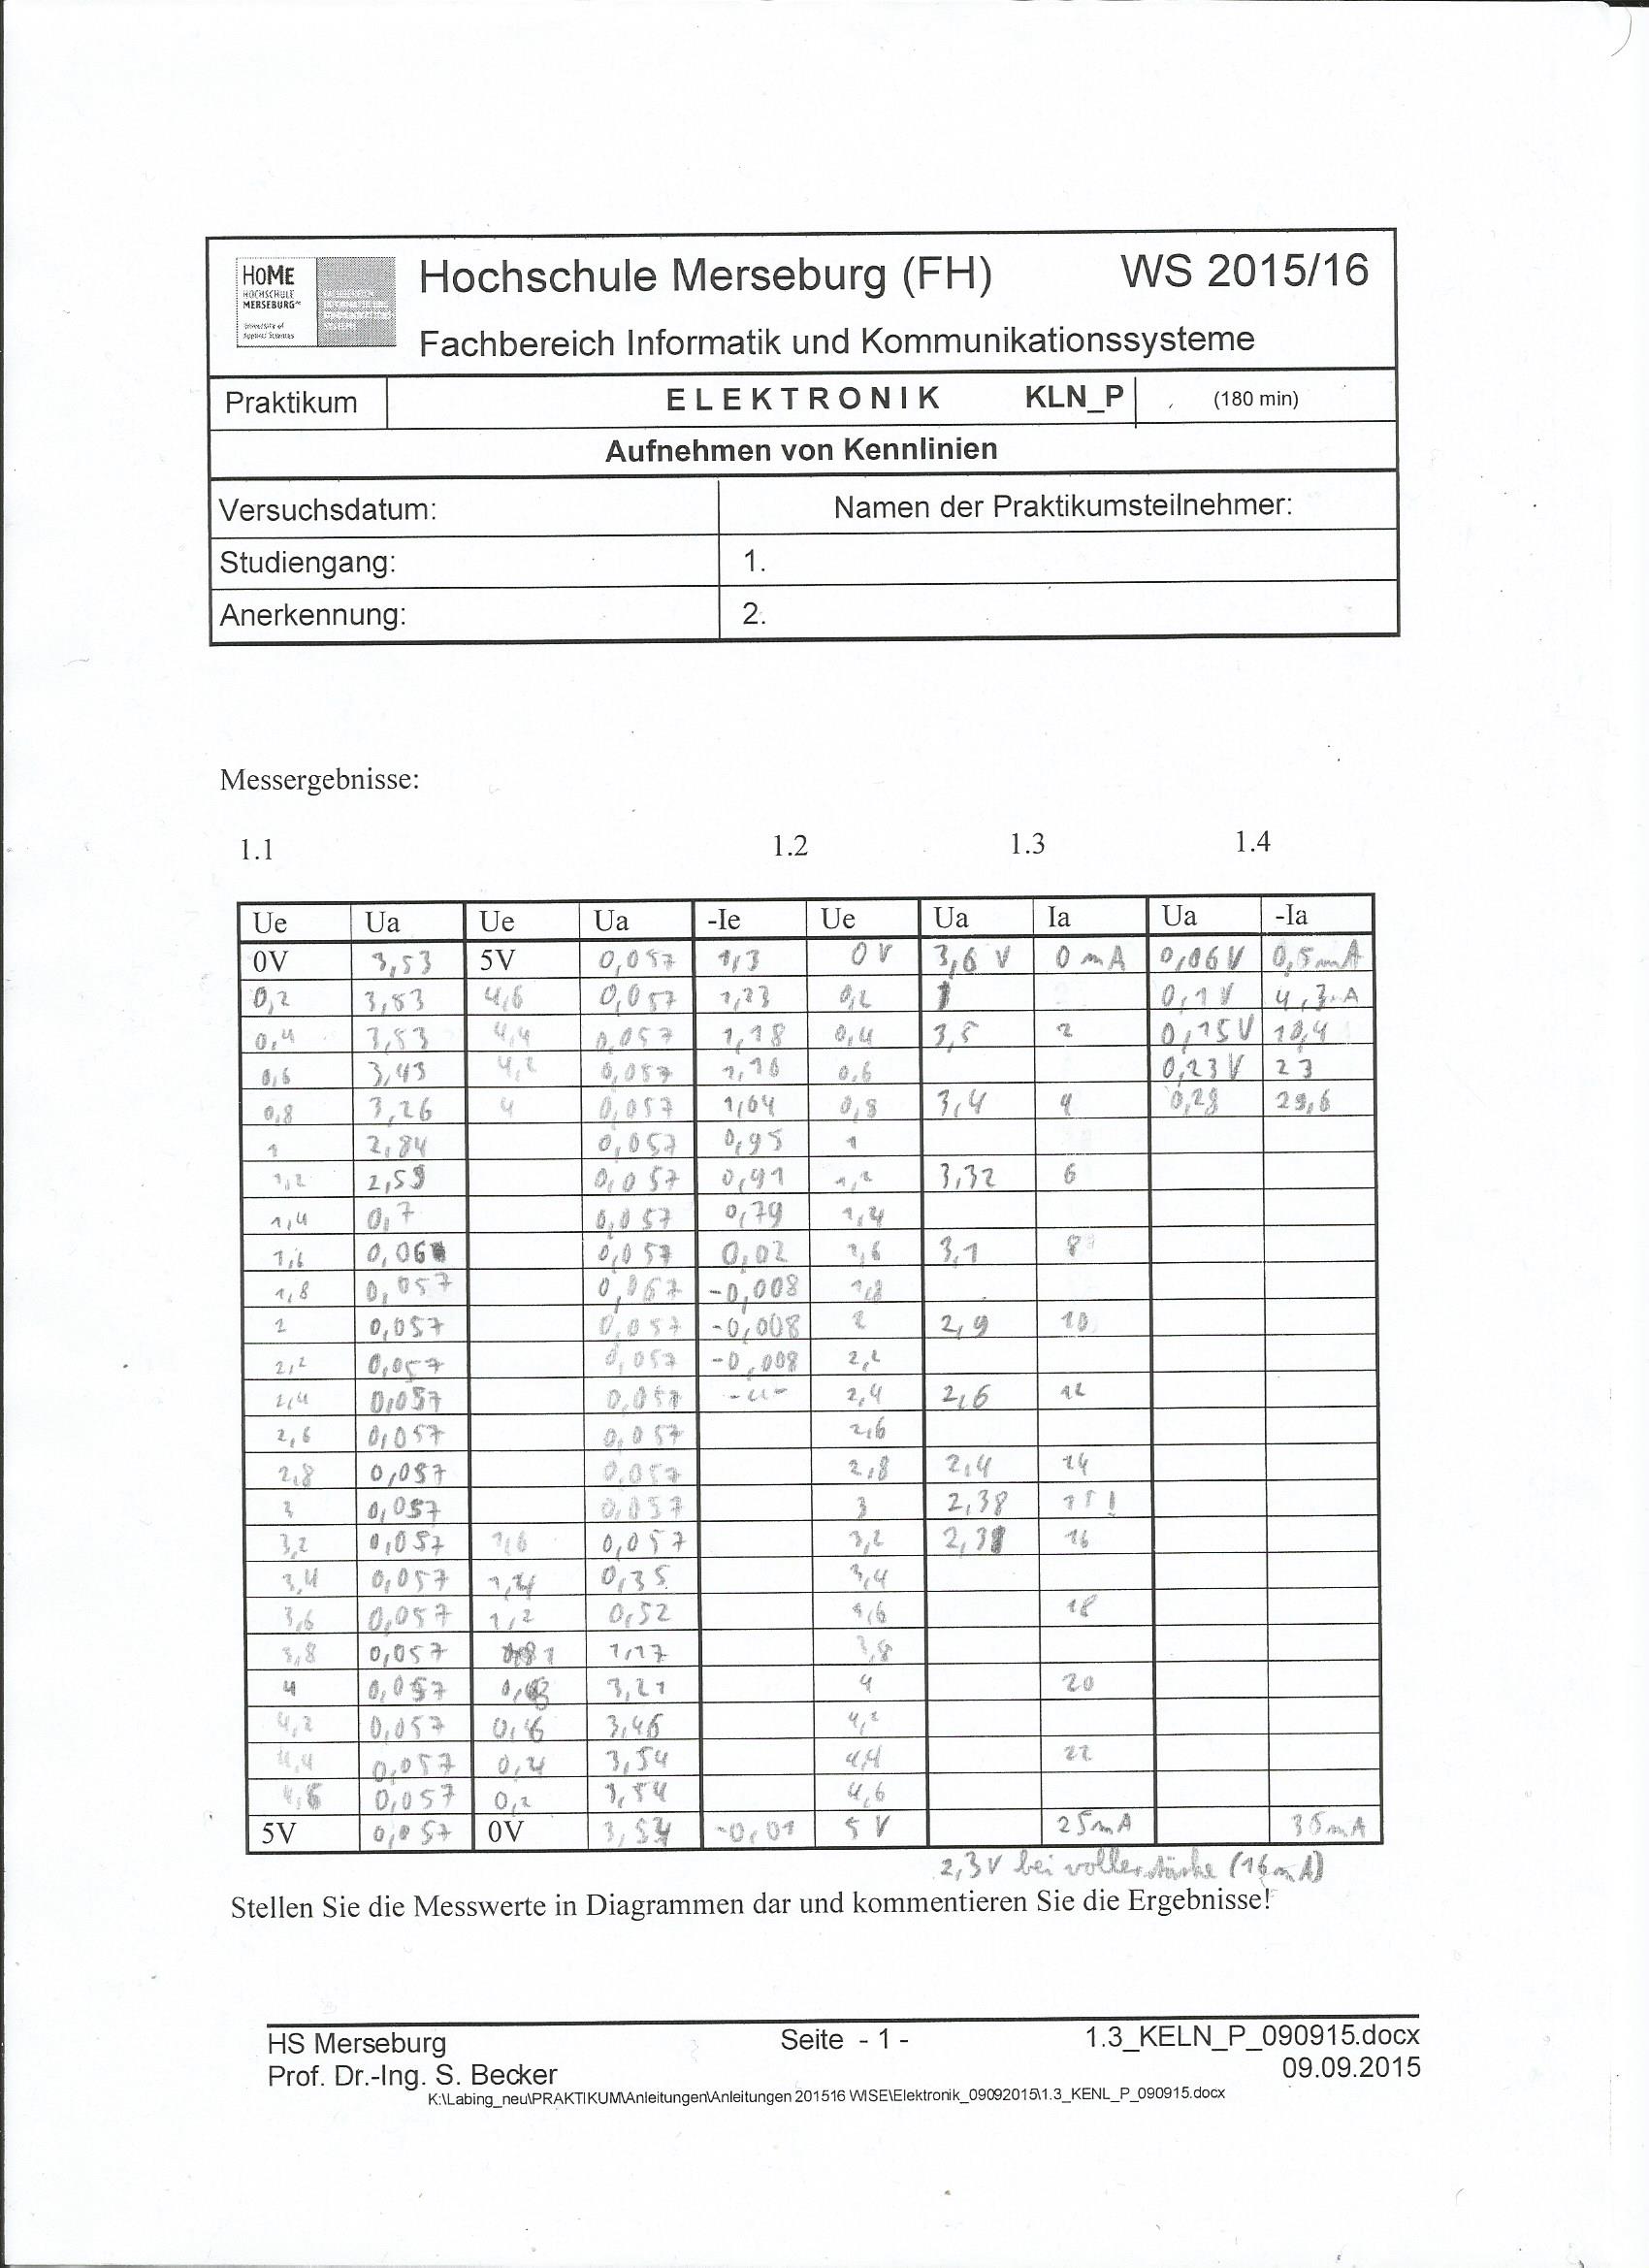 HoME
HOCHSCHULE
MERSEBURG
University of
Applied Sciences
Hochschule Merseburg (FH) WS 2015/16
Fachbereich Informatik und Kommunikationssysteme
Praktikum ELEKTRONIK KLN_P (180 min)
Aufnehmen von Kennlinien
Versuchsdatum: Namen der Praktikumsteilnehmer:
Studiengang: 1.
Anerkennung: 2.
Messergebnisse:
1.1 1.2 1.3 1.4
Ue Ua Ue Ua -Ie Ue Ua Ia Ua -Ia
0V 3,53 5V 0,057 1,3 0V 3,6 V 0 mA 0,06V 0,5mA
0,2 3,53 4,6 0,057 1,23 0,2 0,1V 4,3 A
0,4 3,53 4,4 0,057 1,18 0,4 3,5 2 0,15V 10,4
0,6 3,43 4,2 0,057 1,16 0,6 0,23V 23
0,8 3,26 4 0,057 1,04 0,8 3,4 4 0,28 29,6
1 2,84 0,057 0,95 1
1,2 2,59 0,057 0,91 1,2 3,32 6
1,4 0,7 0,057 0,79 1,4
1,6 0,06 0,057 0,02 1,6 3,1 8
1,8 0,057 0,057 -0,008 1,8
2 0,057 0,057 -0,008 2 2,9 10
2,2 0,057 0,057 -0,008 2,2
2,4 0,057 0,057 -"- 2,4 2,6 12
2,6 0,057 0,057 2,6
2,8 0,057 0,057 2,8 2,4 14
3 0,057 0,057 3 2,38 15!
3,2 0,057 1,6 0,057 3,2 2,3 16
3,4 0,057 1,4 0,35 3,4
3,6 0,057 1,2 0,52 3,6 18
3,8 0,057 1,17 3,8
4 0,057 3,21 4 20
4,2 0,057 0,6 3,46 4,2
4,4 0,057 0,4 3,54 4,4 22
4,6 0,057 0,2 3,54 4,6
5V 0,057 0V 3,54 -0,01 5V 25mA 36mA
2,3V bei voller stärke (16mA)
Stellen Sie die Messwerte in Diagrammen dar und kommentieren Sie die Ergebnisse!
HS Merseburg Seite - 1 - 1.3_KELN_P_090915.docx
Prof. Dr.-Ing. S. Becker 09.09.2015
K:\Labing_neu\PRAKTIKUM\Anleitungen\Anleitungen 201516 WISE\Elektronik_09092015\1.3_KENL_P_090915.docx